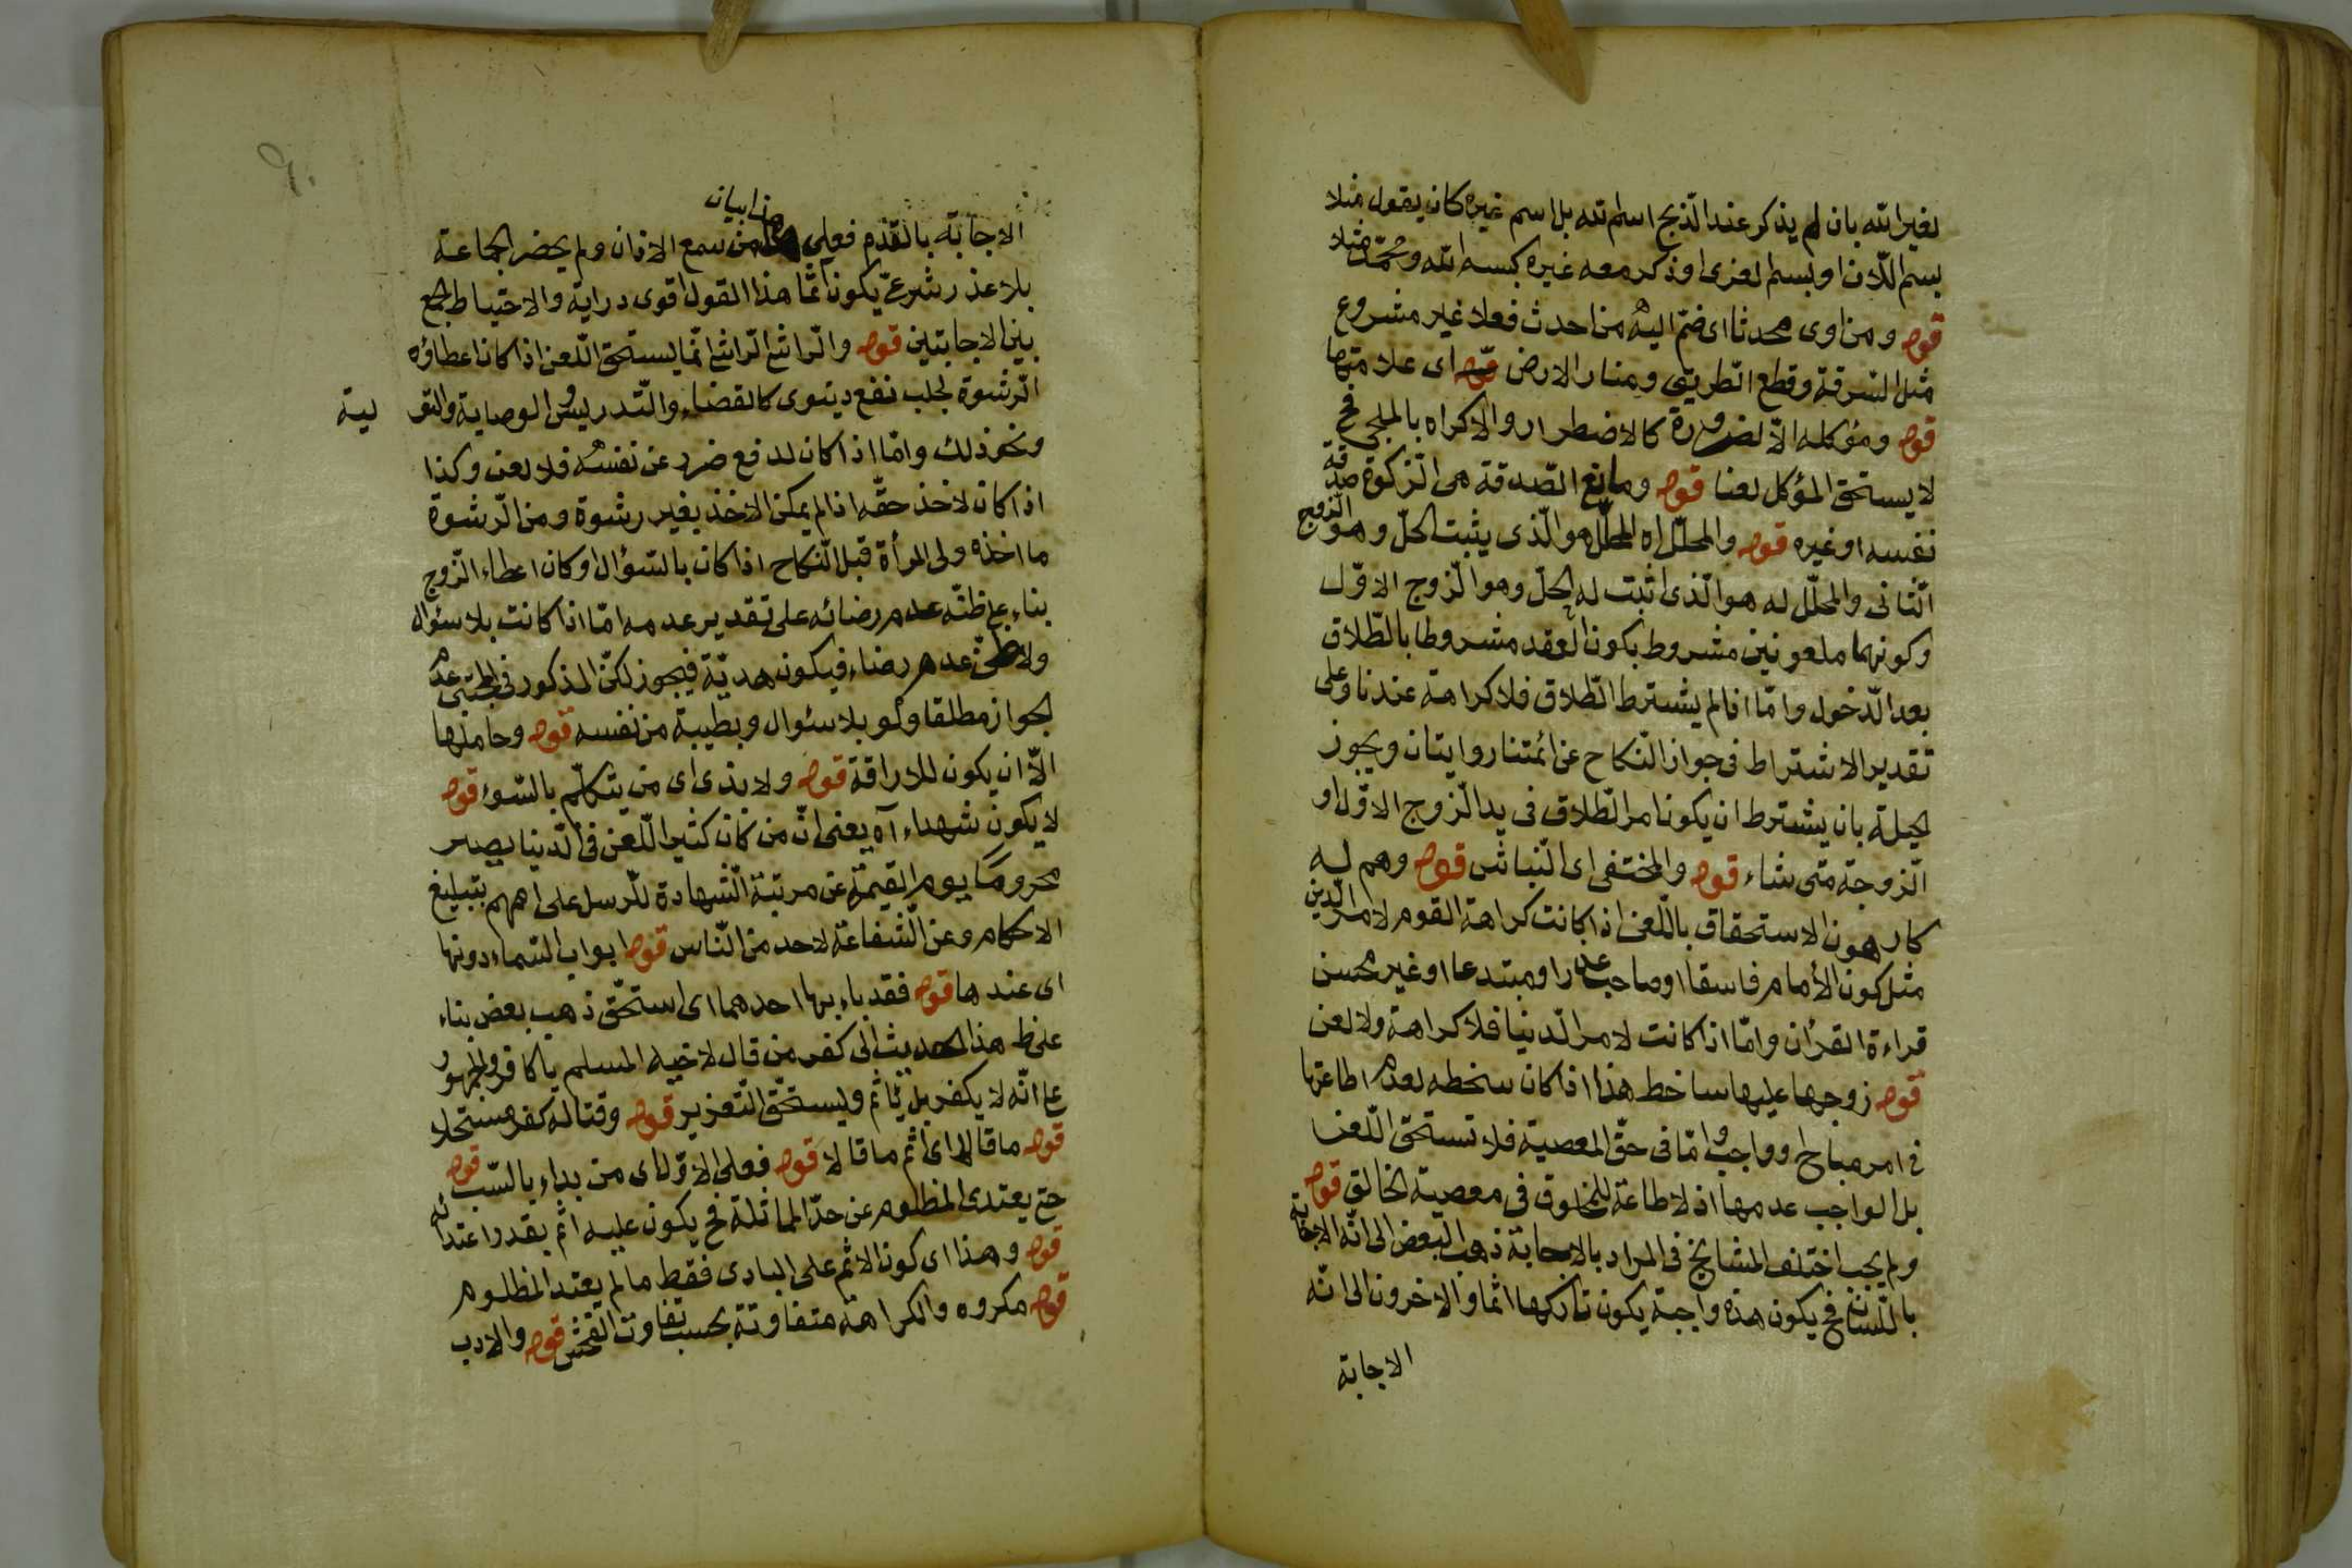 لغير الله بان لم يذكر عند الذبح اسم الله بل اسم غيره كان يقول مثلا
بسم اللات او بسم العزى او ذكر معه غيره كبسم الله ومحمد مثلا
قوله ومن اوى محدثا اى ضم اليه من احدث فعلا غير مشروع
مثل السرقة وقطع الطريق ومنار الارض قوله اى علامتها
قوله ومؤكله الا لضرورة كالاضطرار والاكراه بالملجى فح
لا يستحق المؤكل لعنا قوله ومانع الصدقة هى الزكوة صدقة
نفسه او غيره قوله والمحلل اه المحلل هو الذى يثبت الحل وهو الزوج
الثانى والمحلل له هو الذى اثبت له الحل وهو الزوج الاول
وكونهما ملعونين مشروط بكون العقد مشروطا بالطلاق
بعد الدخول واما اذا لم يشترط الطلاق فلا كراهة عندنا وعلى
تقدير الاشتراط فى جواز النكاح عن ائمتنا روايتان ويجوز
لحيلة بان يشترط ان يكون امر الطلاق فى يد الزوج الاول او
الزوجة متى شاء قوله والمختفى اى النباش قوله وهم له
كارهون الاستحقاق باللعن اذا كانت كراهة القوم لامر الدين
مثل كون الأمام فاسقا او صاحب عذر او مبتدعا او غير محسن
قراءة القرأن واما اذا كانت لامر الدنيا فلا كراهة ولا لعن
قوله زوجها عليها ساخط هذا اذا كان سخطه لعدم اطاعتها
فى امر مباح او واجب واما فى حق المعصية فلا تستحق اللعن
بل الواجب عدمها اذ لا طاعة للمخلوق فى معصية الخالق قوله
ولم يجب اختلف المشايخ فى المراد بالاجابة ذهب البعض الى انه الاجابة
باللسان فح يكون هذه واجبة يكون تاركها اثما والاخرون الى انه
الاجابة
هذا بيان
الاجابة بالقدم فعلى من سمع الاذان ولم يحضر الجماعة
بلا عذر شرعى يكون اثما هذا القول اقوى دراية والاحتياط الجمع
بين الاجابتين قوله والراشى الراشى انما يستحق اللعن اذا كان اعطاؤه
الرشوة لجلب نفع دنيوى كالقضاء والتدريس والوصاية والتو لية
ونحو ذلك واما اذا كان لدفع ضرر عن نفسه فلا لعن وكذا
اذا كان لاخذ حقه اذا لم يمكن الاخذ بغير رشوة ومن الرشوة
ما اخذه ولى المرأة قبل النكاح اذا كان بالسؤال او كان اعطاء الزوج
بناء على ظنه عدم رضائه على تقدير عدمه اما اذا كانت بلا سئوال
ولا ظن عدم رضاء فيكون هدية فيجوز لكن المذكور فى المجتبى عدم
الجواز مطلقا ولو بلا سئوال وبطيبة من نفسه قوله وحاملها
الا ان يكون للاراقة قوله ولا بذى اى من يتكلم بالسوء قوله
لا يكون شهداء آه يعنى ان من كان كثير اللعن فى الدنيا يصير
محروما يوم القيمة عن مرتبة الشهادة للرسل على اممهم بتبليغ
الاحكام وعن الشفاعة لاحد من الناس قوله ابواب السماء دونها
اى عندها قوله فقد باء بها احدهما اى استحق ذهب بعض بناء
على ظ هذا الحديث الى كفر من قال لاخيه المسلم يا كافر والجمهور
على انه لا يكفر بل يأثم ويستحق التعزير قوله وقتاله كفر مستحلا
قوله ما قالا اى اثم ما قالا قوله فعلى الاول اى من بداء بالسب قوله
حتى يعتدى المظلوم عن حد المماثلة فح يكون عليه اثم بقدر اعتدائه
قوله وهذا اى كون الاثم على البادى فقط ما لم يعتد المظلوم
قوله مكروه والكراهة متفاوتة بحسب تفاوت الفحش قوله والادب